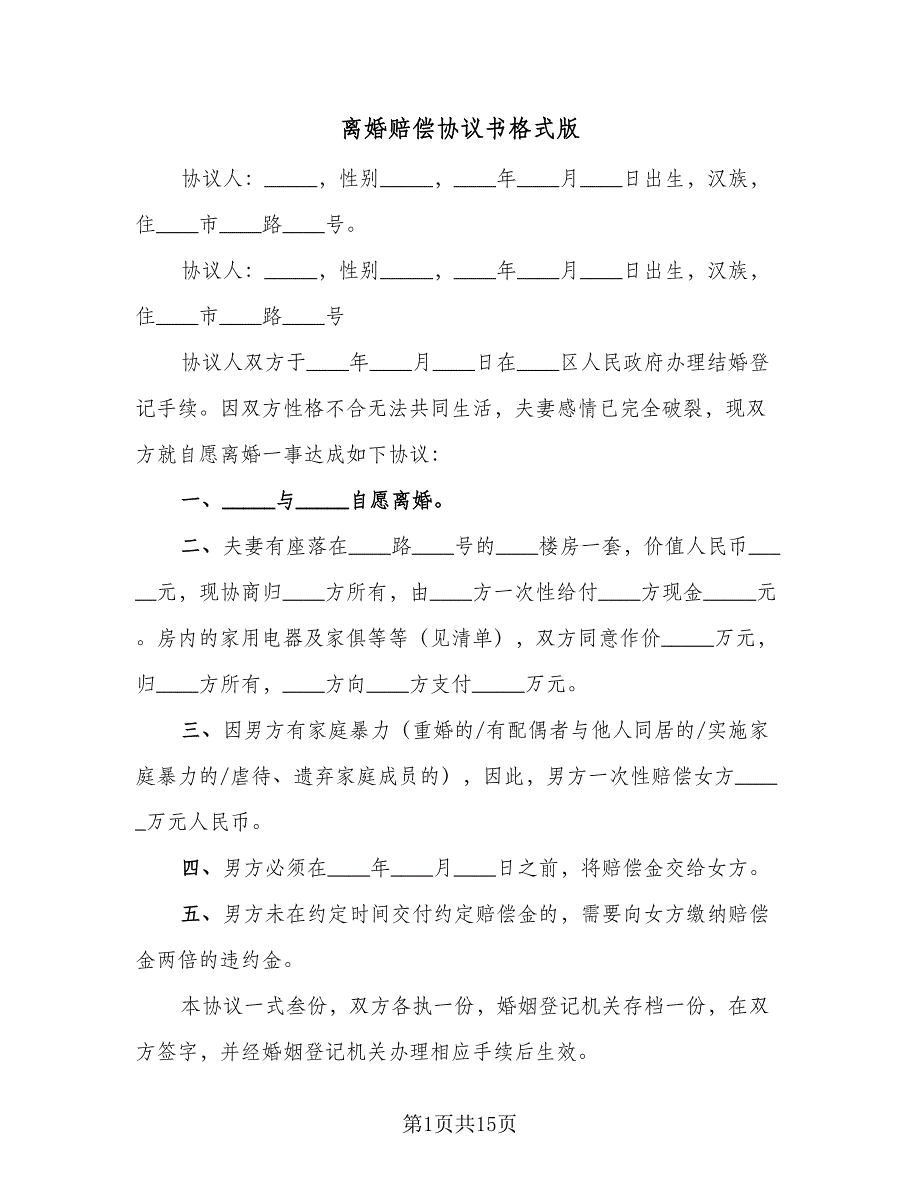 离婚赔偿协议书格式版
协议人：_____，性别_____，____年____月____日出生，汉族，
住____市____路____号。
协议人：_____，性别_____，____年____月____日出生，汉族，
住____市____路____号
协议人双方于____年____月____日在____区人民政府办理结婚登
记手续。因双方性格不合无法共同生活，夫妻感情已完全破裂，现双
方就自愿离婚一事达成如下协议：
一、_____与_____自愿离婚。
二、夫妻有座落在____路____号的____楼房一套，价值人民币___
__元，现协商归____方所有，由____方一次性给付____方现金_____元
。房内的家用电器及家俱等等（见清单），双方同意作价_____万元，
归____方所有，____方向____方支付_____万元。
三、因男方有家庭暴力（重婚的/有配偶者与他人同居的/实施家
庭暴力的/虐待、遗弃家庭成员的），因此，男方一次性赔偿女方____
_万元人民币。
四、男方必须在____年____月____日之前，将赔偿金交给女方。
五、男方未在约定时间交付约定赔偿金的，需要向女方缴纳赔偿
金两倍的违约金。
本协议一式叁份，双方各执一份，婚姻登记机关存档一份，在双
方签字，并经婚姻登记机关办理相应手续后生效。
第1页共15页